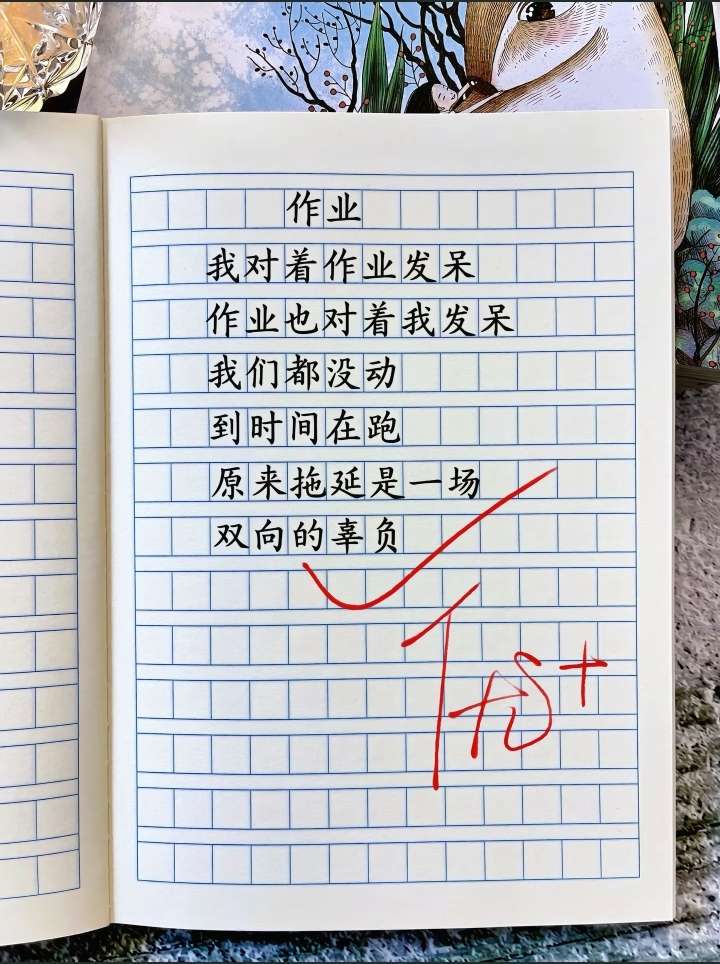 作业
我对着作业发呆
作业也对着我发呆
我们都没动
到时间在跑
原来拖延是一场
双向的辜负
优+